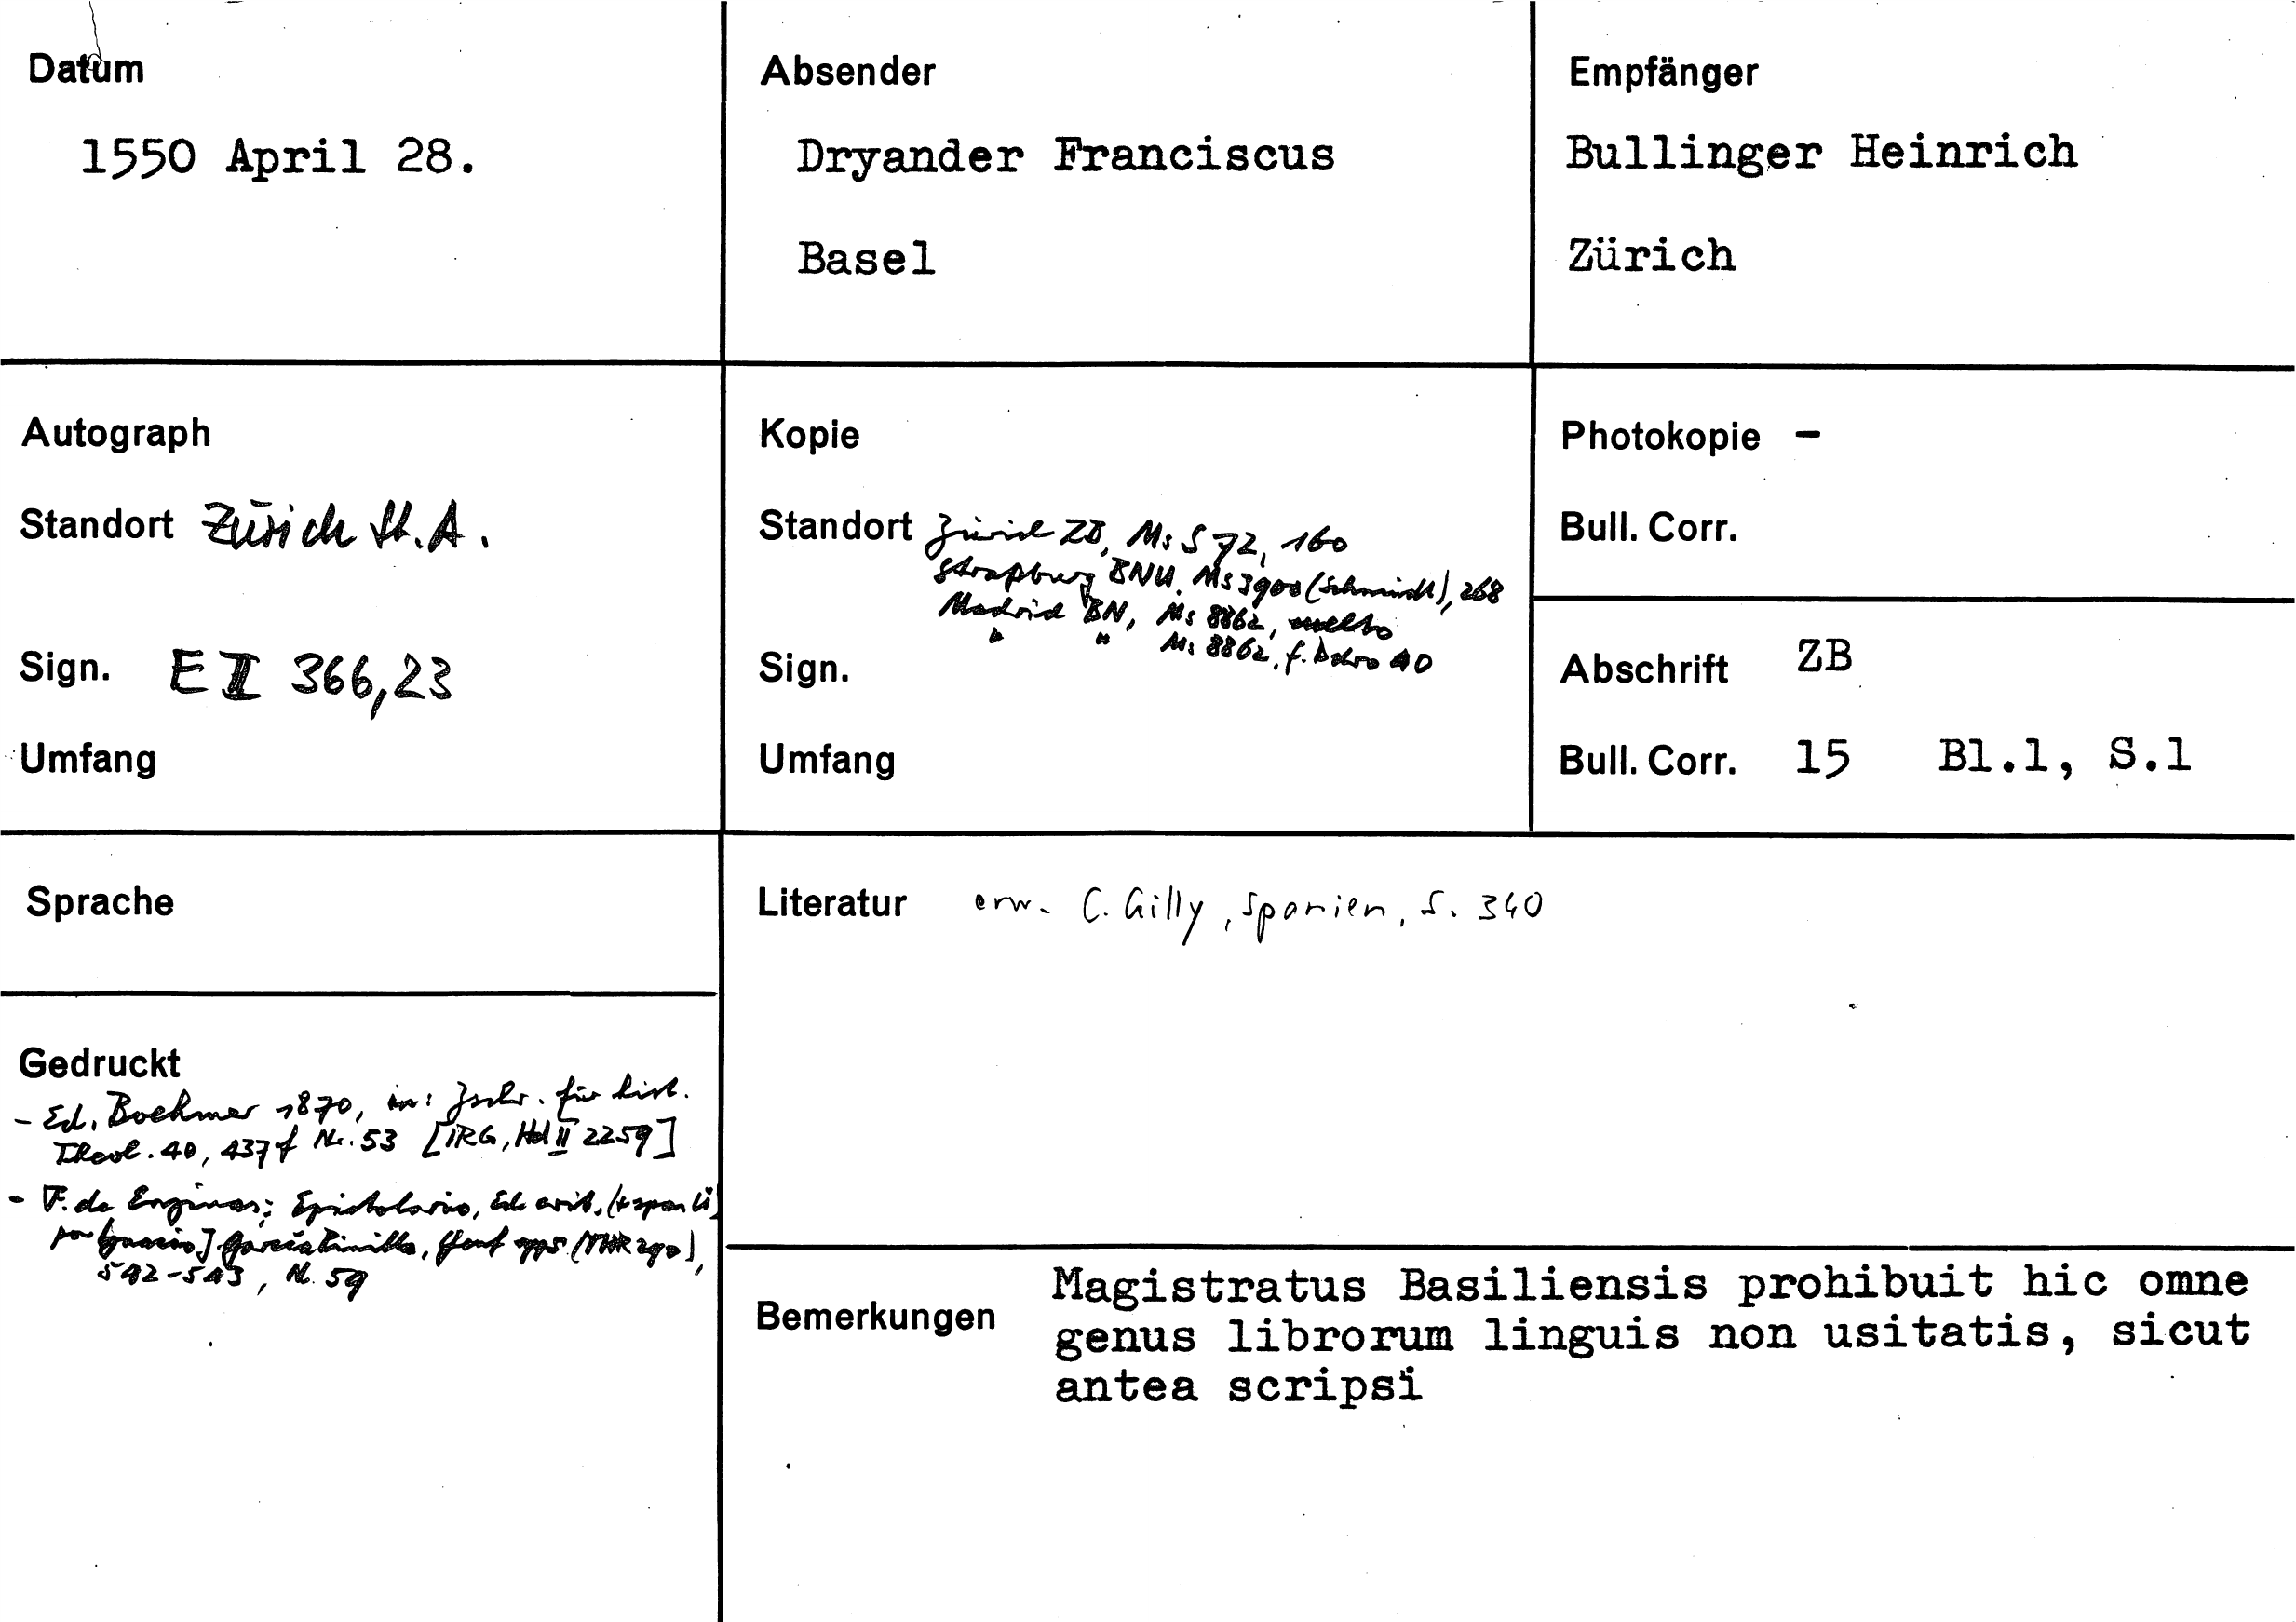 Datum
1550 April 28.
Absender
Dryander Franciscus
Basel
Empfänger
Bullinger Heinrich
Zürich
Autograph
Standort Zürich St.A.
Sign. E II 366,23
Umfang
Kopie
Standort Zürich ZB, Ms S 72, 160
Straßburg BNU, Ms 3900 (Schmidt), 268
Madrid BN, Ms 8862,
" " Ms 8862, f.
Sign.
Umfang
Photokopie -
Bull. Corr.
Abschrift ZB
Bull. Corr. 15 Bl.1, S.1
Sprache
Literatur erw. C. Gilly, Spanien, S. 340
Gedruckt
- Ed. Boehmer 1870, in: Zschr. für hist.
Theol. 40, 437f Nr. 53 [IRG, Hol II 2259]
- F. de Enzinas: Epistolario, Ed. crit.
García Pinilla, Genf (THR 290),
542-543, Nr. 59
Bemerkungen
Magistratus Basiliensis prohibuit hic omne
genus librorum linguis non usitatis, sicut
antea scripsi